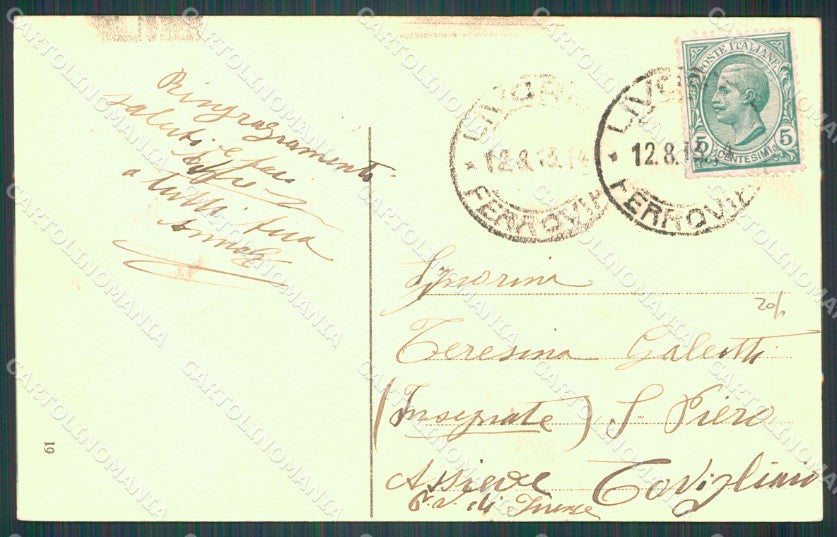 Ringraziamenti
saluti e baci
a tutti tua
LIVORNO
12.8.13.14
FERROVIA
LIVORNO
12.8.13
FERROVIA
POSTE ITALIANE
5 5
CENTESIMI
Signorina
Teresina Galeotti
(Insegnate) S. Piero
Assieve Covigliaio
P.a. di Firenze
20/1
19
CARTOLINOMANIA